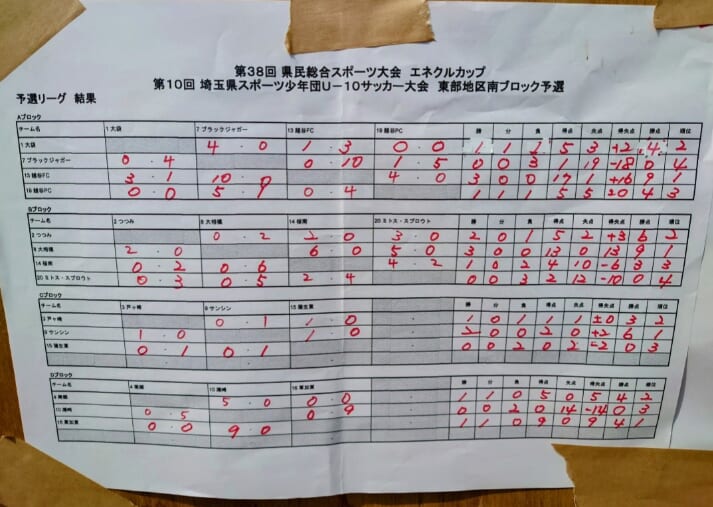 第38回 県民総合スポーツ大会 エネクルカップ
第10回 埼玉県スポーツ少年団U-10サッカー大会 東部地区南ブロック予選
予選リーグ 結果
Aブロック
チーム名 1 大袋 7 ブラックジャガー 13 越谷FC 19 越谷PC 勝 分 負 得点 失点 得失点 勝点 順位
1 大袋 4・0 1・3 0・0 1 1 1 5 3 +2 4 2
7 ブラックジャガー 0・4 0・10 1・5 0 0 3 1 19 -18 0 4
13 越谷FC 3・1 10・0 4・0 3 0 0 17 1 +16 9 1
0・0 5・1 0・4 1 1 1 5 5 ±0 4 3
Bブロック
チーム名 2 つつみ 8 大相模 14 桜南 20 ミトス・スプラウト 勝 分 負 得点 失点 得失点 勝点 順位
2 つつみ 0・2 2・0 3・0 2 0 1 5 2 +3 6 2
8 大相模 2・0 6・0 5・0 3 0 0 13 0 13 9 1
14 桜南 0・2 0・6 4・2 1 0 2 4 10 -6 3 3
20 ミトス・スプラウト 0・3 0・5 2・4 0 0 3 2 12 -10 0 4
Cブロック
チーム名 3 戸ヶ崎 9 サンシン 15 蒲生東 勝 分 負 得点 失点 得失点 勝点 順位
3 戸ヶ崎 0・1 1・0 1 0 1 1 1 ±0 3 2
9 サンシン 1・0 1・0 2 0 0 2 0 +2 6 1
15 蒲生東 0・1 0・1 0 0 2 0 2 -2 0 3
Dブロック
チーム名 勝 分 負 得点 失点 得失点 勝点 順位
5・0 0・0 1 1 0 5 0 5 4 2
0・5 0・9 0 0 2 0 14 -14 0 3
16 草加東 0・0 9・0 1 1 0 9 0 9 4 1